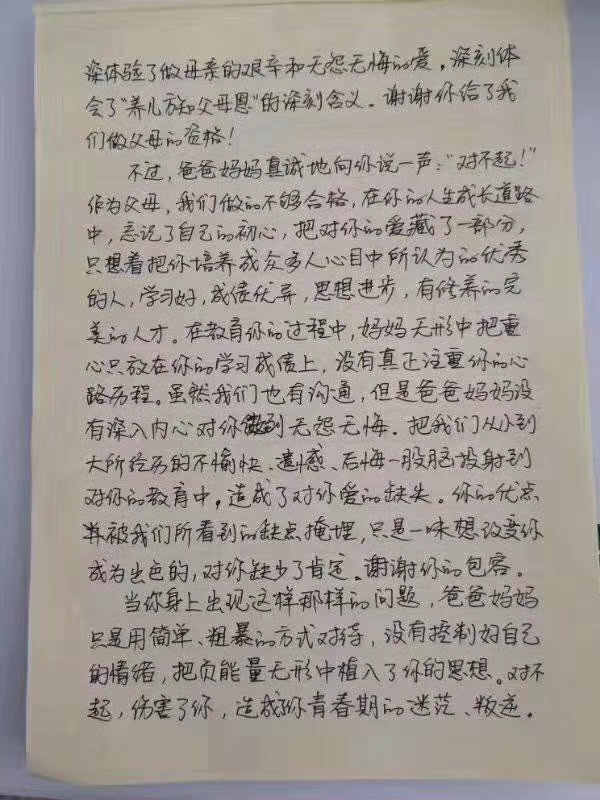 深体验了做母亲的艰辛和无怨无悔的爱，深刻体
会了“养儿方知父母恩”的深刻含义。谢谢你给了我
们做父母的资格！
不过，爸爸妈妈真诚地向你说一声：“对不起！”
作为父母，我们做的不够合格，在你的人生成长道路
中，忘记了自己的初心，把对你的爱藏了一部分，
只想着把你培养成众多人心目中所认为的优秀
的人，学习好，成绩优异，思想进步，有修养的完
美的人才。在教育你的过程中，妈妈无形中把重
心只放在你的学习成绩上，没有真正注重你的心
路历程。虽然我们也有沟通，但是爸爸妈妈没
有深入内心对你做到无怨无悔。把我们从小到
大所经历的不愉快、遗憾、后悔一股脑投射到
对你的教育中，造成了对你爱的缺失。你的优点
并被我们所看到的缺点掩埋，只是一味想改变你
成为出色的，对你缺少了肯定。谢谢你的包容。
当你身上出现这样那样的问题，爸爸妈妈
只是用简单、粗暴的方式对待，没有控制好自己
的情绪，把负能量无形中植入了你的思想。对不
起，伤害了你，造成你青春期的迷茫、叛逆。